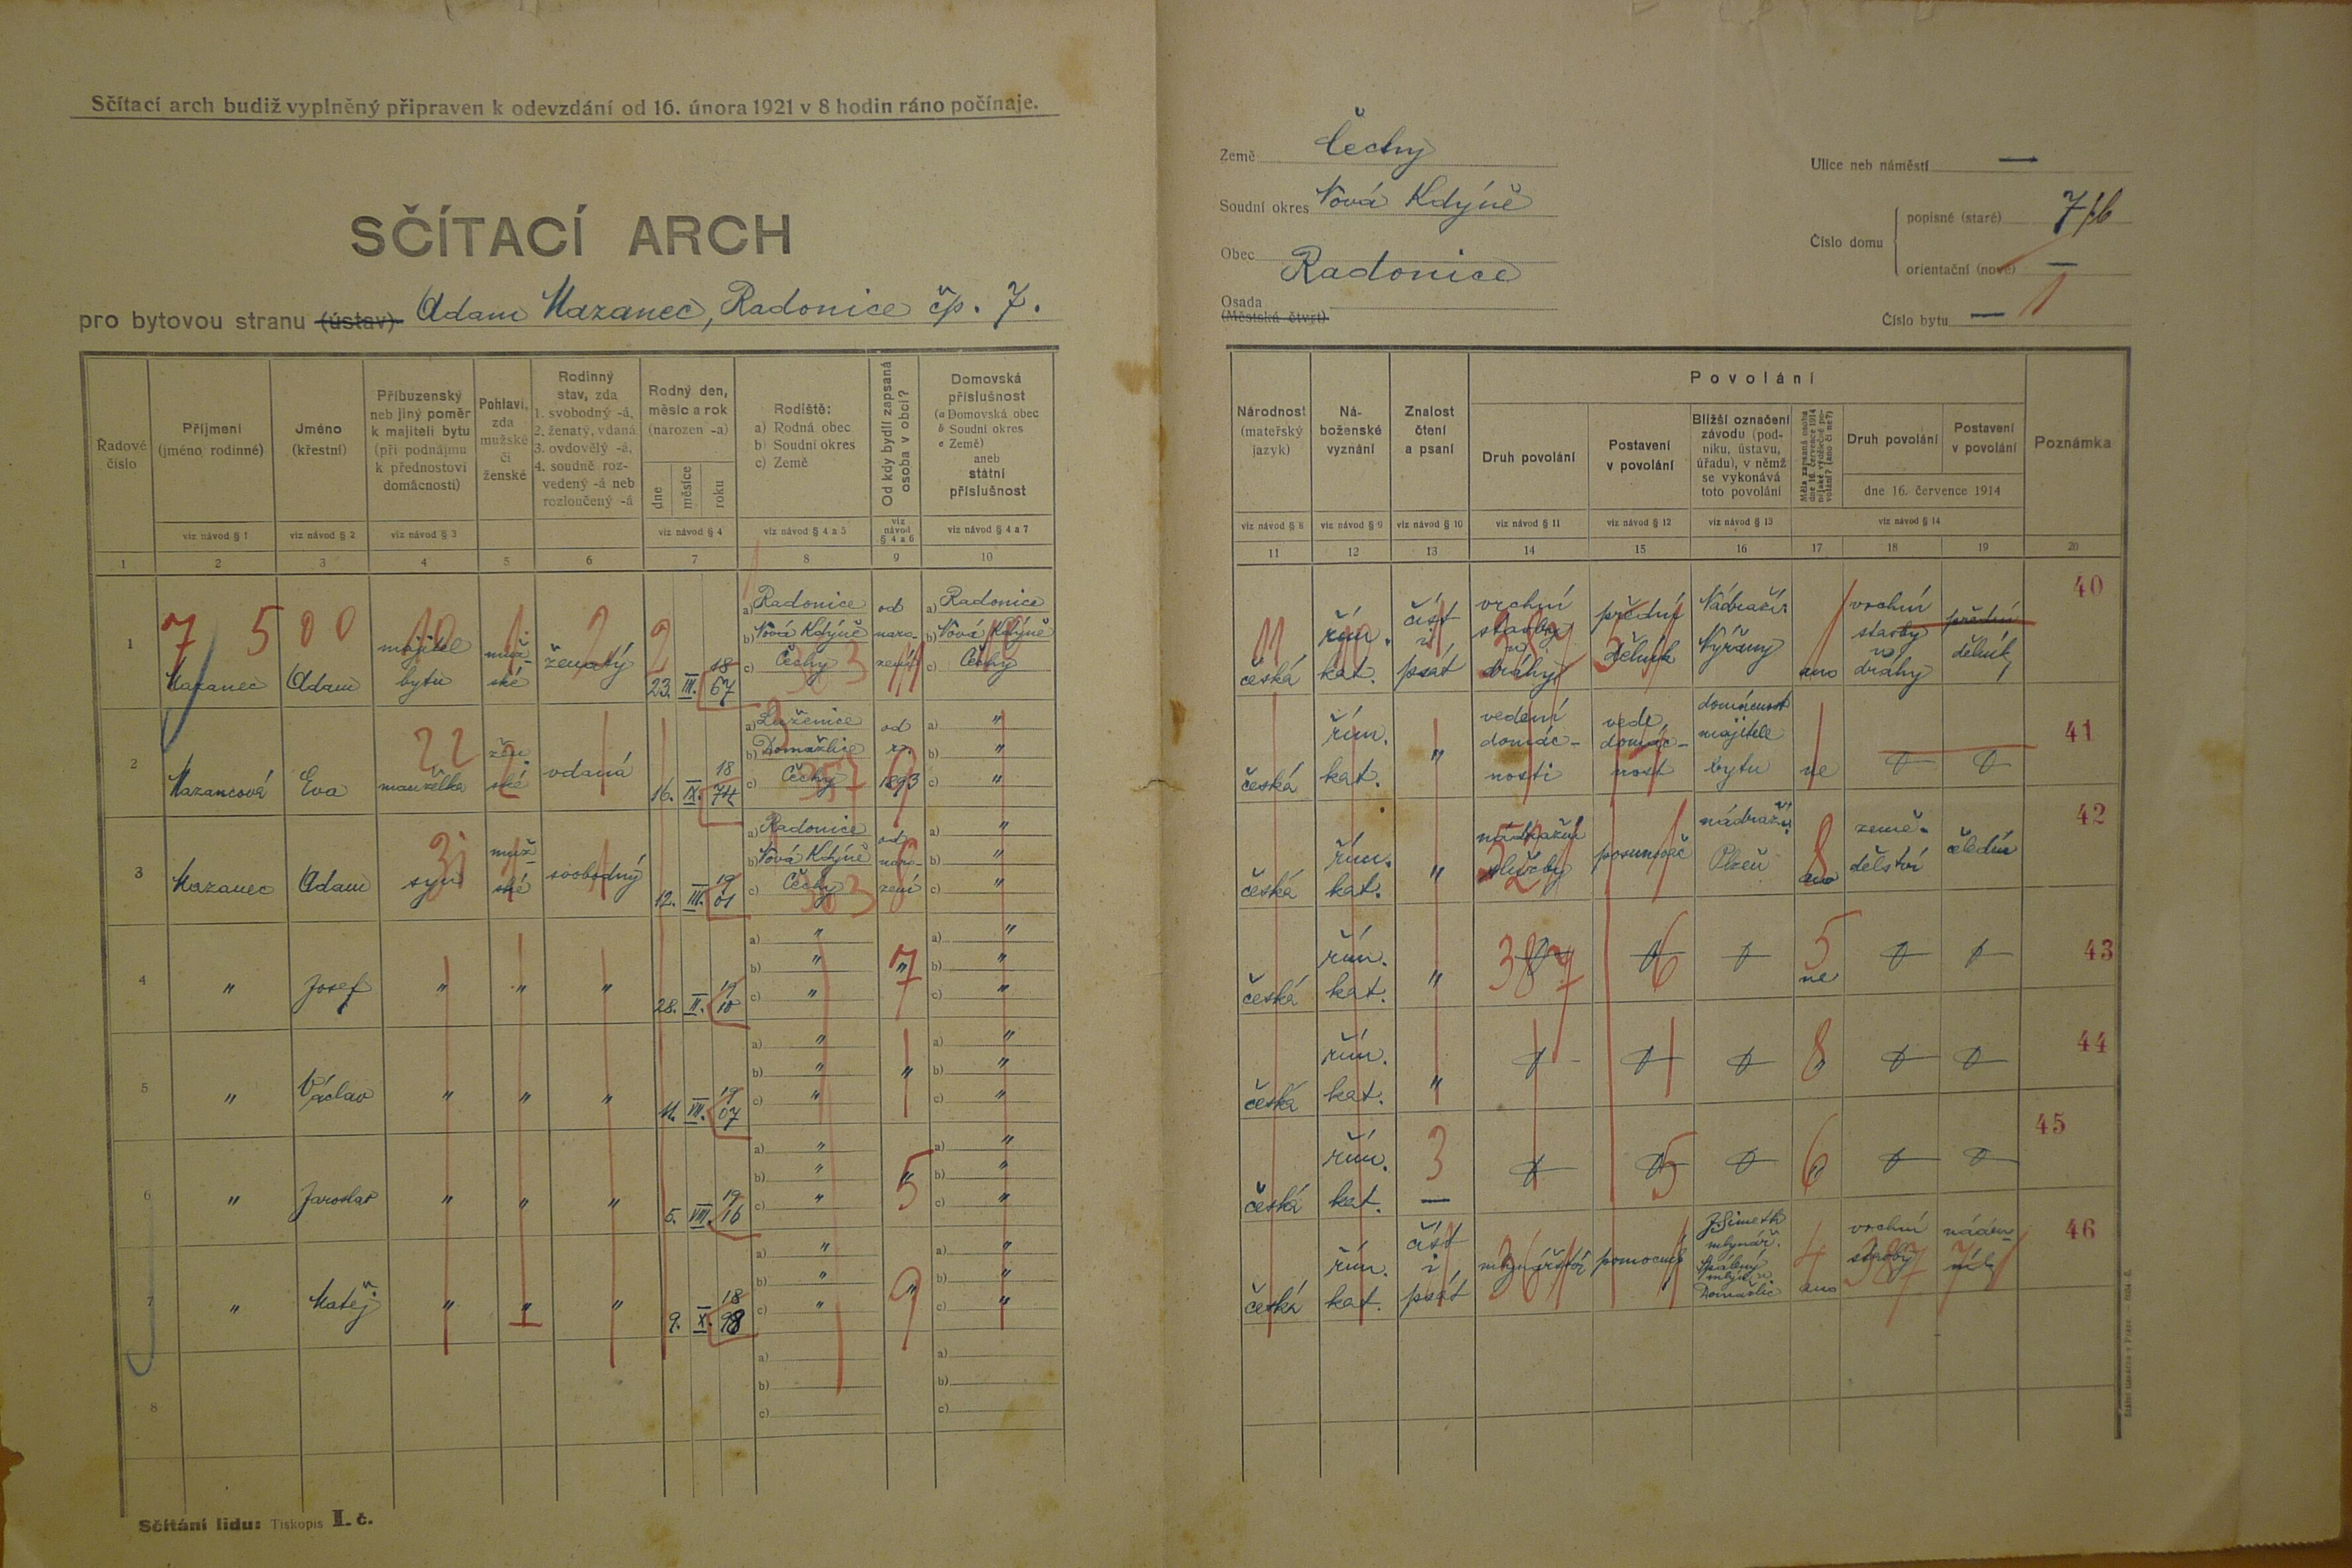 Sčítací arch budiž vyplněný připraven k odevzdání od 16. února 1921 v 8 hodin ráno počínaje.
SČÍTACÍ ARCH
pro bytovou stranu (ústav) Adam Mazanec, Radonice čp. 7.
Řadové číslo
Příjmení
(jméno rodinné)
Jméno
(křestní)
Příbuzenský
neb jiný poměr
k majiteli bytu
(při podnájmu
k přednostovi
domácnosti)
Pohlaví,
zda
mužské
či
ženské
Rodinný
stav, zda
1. svobodný -á,
2. ženatý, vdaná
3. ovdovělý -á,
4. soudně roz-
vedený -á neb
rozloučený -á
Rodný den,
měsíc a rok
(narozen -a)
dne
měsíce
roku
Rodiště:
a) Rodná obec
b) Soudní okres
c) Země
Od kdy bydlí zapsaná
osoba v obci?
Domovská
příslušnost
(a Domovská obec
b Soudní okres
c Země)
aneb
státní
příslušnost
viz návod § 1
viz návod § 2
viz návod § 3
viz návod § 4
viz návod § 4 a 5
viz
návod
§ 4 a 6
viz návod § 4 a 7
1 2 3 4 5 6 7 8 9 10
7 5 0 0
1 Mazanec Adam majitel bytu muž-ské ženatý 23. III. 1867
a) Radonice
b) Nová Kdýně
c) Čechy
od naro-zení
a) Radonice
b) Nová Kdýně
c) Čechy
2 Mazancová Eva manželka žen-ské vdaná 16. IX. 1874
a) Luženice
b) Domažlice
c) Čechy
od r. 1893
a) "
b) "
c) "
3 Mazanec Adam syn muž-ské svobodný 12. III. 1901
a) Radonice
b) Nová Kdýně
c) Čechy
od naro-zení
a) "
b) "
c) "
4 " Josef " " " 28. II. 1910
a) "
b) "
c) "
"
a) "
b) "
c) "
5 " Václav " " " 11. VII. 1907
a) "
b) "
c) "
"
a) "
b) "
c) "
6 " Jaroslav " " " 5. VIII. 1916
a) "
b) "
c) "
"
a) "
b) "
c) "
7 " Matěj " " " 9. X. 1898
a) "
b) "
c) "
"
a) "
b) "
c) "
8
a)
b)
c)
a)
b)
c)
Sčítání lidu: Tiskopis II. č.
Země Čechy
Soudní okres Nová Kdýně
Obec Radonice
Osada
(Městská čtvrt)
Ulice neb náměstí —
Číslo domu
popisné (staré) 7
orientační (nové) —
Číslo bytu — 1
Národnost
(mateřský
jazyk)
Ná-
boženské
vyznání
Znalost
čtení
a psaní
Povolání
Druh povolání
Postavení
v povolání
Bližší označení
závodu (pod-
niku, ústavu,
úřadu), v němž
se vykonává
toto povolání
Měla zapsaná osoba
dne 16. července 1914
nějaké výdělečné po-
volání? (ano či ne?)
Druh povolání
Postavení
v povolání
dne 16. července 1914
Poznámka
viz návod § 8
viz návod § 9
viz návod § 10
viz návod § 11
viz návod § 12
viz návod § 13
viz návod § 14
11 12 13 14 15 16 17 18 19 20
česká řím. kat. číst i psát vrchní stavby u dráhy přední dělník Nádraží Nýřany ano vrchní stavby u dráhy přední dělník 40
česká řím. kat. " vedení domác-nosti vede domác-nost domácnost majitele bytu ne 41
česká řím. kat. " nádražní služby posunovač nádraží Plzeň ano země-dělství čeledín 42
česká řím. kat. " 387 6 5 ne 43
česká řím. kat. " 8 " 44
česká řím. kat. 3 — 5 6 " 45
česká řím. kat. číst i psát mlynářství pomocník mlynář. Spálený mlýn u Domažlic 4 ano vrchní stavby 387 46